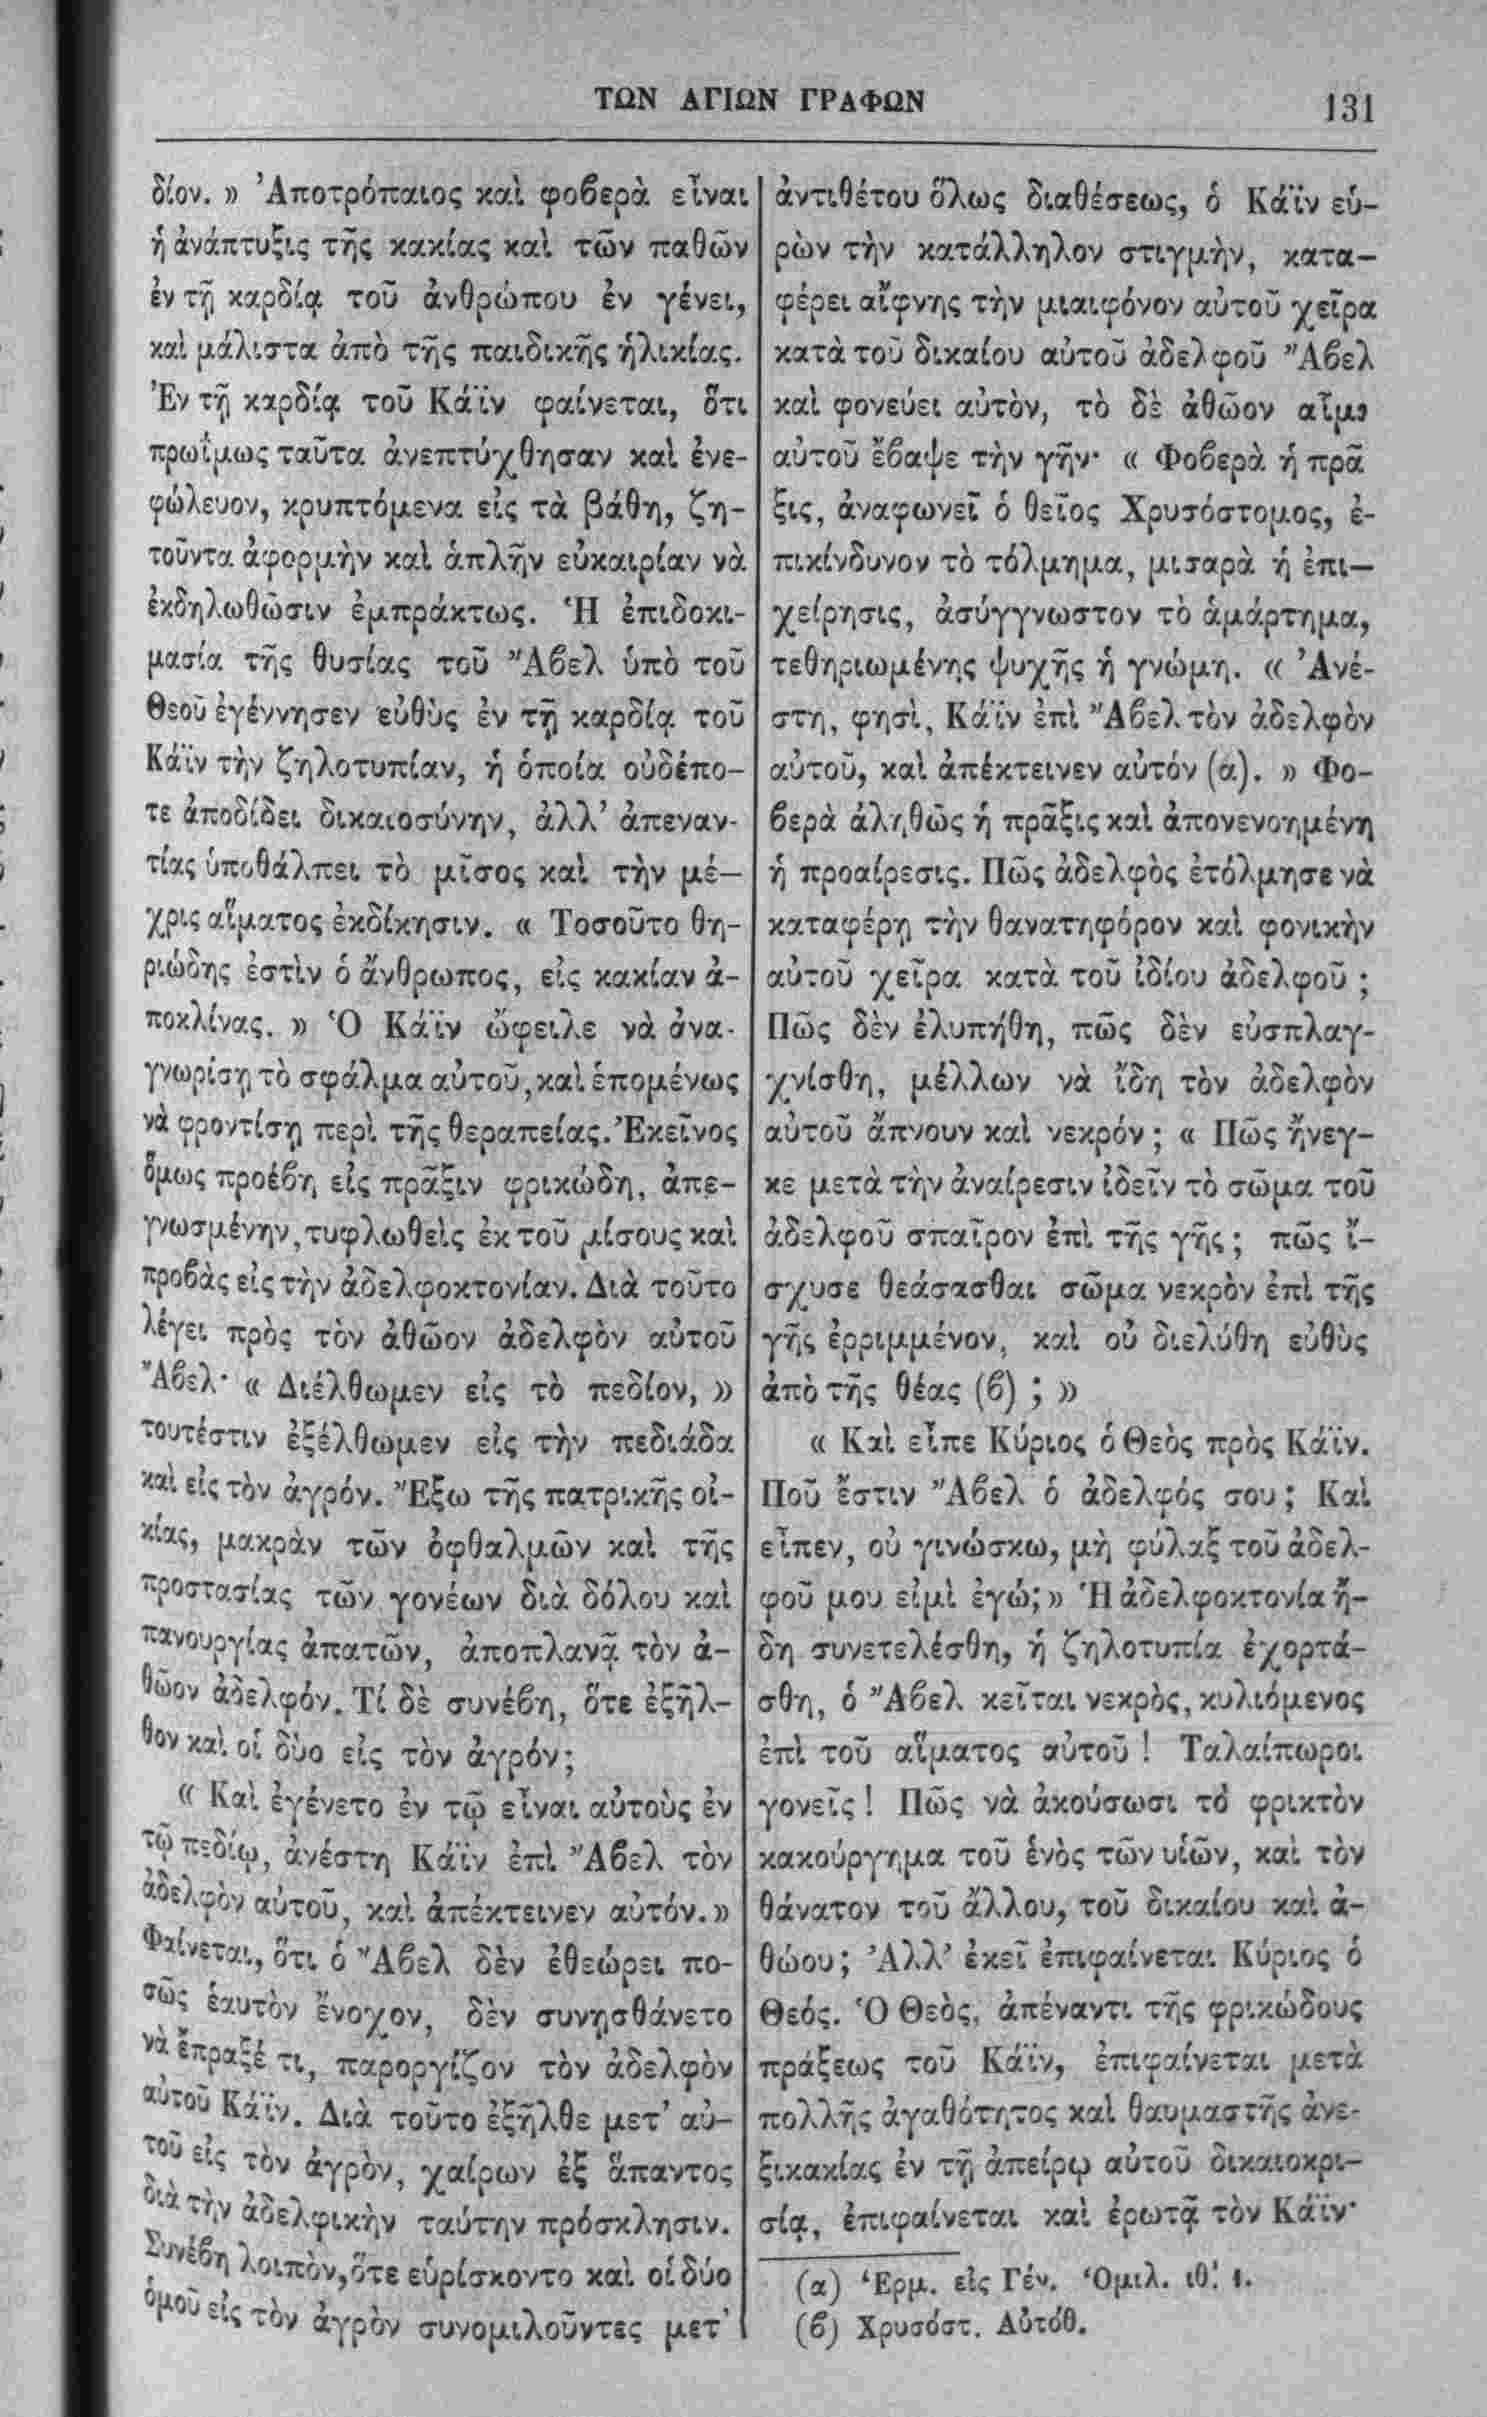 ΤΩΝ ΑΓΙΩΝ ΓΡΑΦΩΝ
131
δίον. » Ἀποτρόπαιος καὶ φοβερὰ εἶναι
ἡ ἀνάπτυξις τῆς κακίας καὶ τῶν παθῶν
ἐν τῇ καρδίᾳ τοῦ ἀνθρώπου ἐν γένει,
καὶ μάλιστα ἀπὸ τῆς παιδικῆς ἡλικίας.
Ἐν τῇ καρδίᾳ τοῦ Κάϊν φαίνεται, ὅτι
πρωΐμως ταῦτα ἀνεπτύχθησαν καὶ ἐνε-
φώλευον, κρυπτόμενα εἰς τὰ βάθη, ζη-
τοῦντα ἀφορμὴν καὶ ἁπλῆν εὐκαιρίαν νὰ
ἐκδηλωθῶσιν ἐμπράκτως. Ἡ ἐπιδοκι-
μασία τῆς θυσίας τοῦ Ἄβελ ὑπὸ τοῦ
Θεοῦ ἐγέννησεν εὐθὺς ἐν τῇ καρδίᾳ τοῦ
Κάϊν τὴν ζηλοτυπίαν, ἡ ὁποία οὐδέπο-
τε ἀποδίδει δικαιοσύνην, ἀλλ' ἀπεναν-
τίας ὑποθάλπει τὸ μῖσος καὶ τὴν μέ-
χρις αἵματος ἐκδίκησιν. « Τοσοῦτο θη-
ριώδης ἐστὶν ὁ ἄνθρωπος, εἰς κακίαν ἀ-
ποκλίνας. » Ὁ Κάϊν ὤφειλε νὰ ἀνα-
γνωρίσῃ τὸ σφάλμα αὐτοῦ, καὶ ἑπομένως
νὰ φροντίσῃ περὶ τῆς θεραπείας. Ἐκεῖνος
ὅμως προέβη εἰς πρᾶξιν φρικώδη, ἀπε-
γνωσμένην, τυφλωθεὶς ἐκ τοῦ μίσους καὶ
προβὰς εἰς τὴν ἀδελφοκτονίαν. Διὰ τοῦτο
λέγει πρὸς τὸν ἀθῶον ἀδελφὸν αὐτοῦ
Ἄβελ· « Διέλθωμεν εἰς τὸ πεδίον, »
τουτέστιν ἐξέλθωμεν εἰς τὴν πεδιάδα
καὶ εἰς τὸν ἀγρόν. Ἔξω τῆς πατρικῆς οἰ-
κίας, μακρὰν τῶν ὀφθαλμῶν καὶ τῆς
προστασίας τῶν γονέων διὰ δόλου καὶ
πανουργίας ἀπατῶν, ἀποπλανᾷ τὸν ἀ-
θῶον ἀδελφόν. Τί δὲ συνέβη, ὅτε ἐξῆλ-
θον καὶ οἱ δύο εἰς τὸν ἀγρόν;
« Καὶ ἐγένετο ἐν τῷ εἶναι αὐτοὺς ἐν
τῷ πεδίῳ, ἀνέστη Κάϊν ἐπὶ Ἄβελ τὸν
ἀδελφὸν αὐτοῦ, καὶ ἀπέκτεινεν αὐτόν. »
Φαίνεται, ὅτι ὁ Ἄβελ δὲν ἐθεώρει πο-
σῶς ἑαυτὸν ἔνοχον, δὲν συνῃσθάνετο
νὰ ἔπραξέ τι, παροργίζον τὸν ἀδελφὸν
αὐτοῦ Κάϊν. Διὰ τοῦτο ἐξῆλθε μετ' αὐ-
τοῦ εἰς τὸν ἀγρὸν, χαίρων ἐξ ἅπαντος
διὰ τὴν ἀδελφικὴν ταύτην πρόσκλησιν.
Συνέβη λοιπὸν, ὅτε εὑρίσκοντο καὶ οἱ δύο
ὁμοῦ εἰς τὸν ἀγρὸν συνομιλοῦντες μετ'
ἀντιθέτου ὅλως διαθέσεως, ὁ Κάϊν εὑ-
ρὼν τὴν κατάλληλον στιγμὴν, κατα-
φέρει αἴφνης τὴν μιαιφόνον αὐτοῦ χεῖρα
κατὰ τοῦ δικαίου αὐτοῦ ἀδελφοῦ Ἄβελ
καὶ φονεύει αὐτὸν, τὸ δὲ ἀθῶον αἷμα
αὐτοῦ ἔβαψε τὴν γῆν· « Φοβερὰ ἡ πρᾶ
ξις, ἀναφωνεῖ ὁ θεῖος Χρυσόστομος, ἐ-
πικίνδυνον τὸ τόλμημα, μισαρὰ ἡ ἐπι-
χείρησις, ἀσύγγνωστον τὸ ἁμάρτημα,
τεθηριωμένης ψυχῆς ἡ γνώμη. « Ἀνέ-
στη, φησὶ, Κάϊν ἐπὶ Ἄβελ τὸν ἀδελφὸν
αὐτοῦ, καὶ ἀπέκτεινεν αὐτόν (α). » Φο-
βερὰ ἀληθῶς ἡ πρᾶξις καὶ ἀπονενοημένη
ἡ προαίρεσις. Πῶς ἀδελφὸς ἐτόλμησε νὰ
καταφέρῃ τὴν θανατηφόρον καὶ φονικὴν
αὐτοῦ χεῖρα κατὰ τοῦ ἰδίου ἀδελφοῦ ;
Πῶς δὲν ἐλυπήθη, πῶς δὲν εὐσπλαγ-
χνίσθη, μέλλων νὰ ἴδῃ τὸν ἀδελφὸν
αὐτοῦ ἄπνουν καὶ νεκρόν ; « Πῶς ἤνεγ-
κε μετὰ τὴν ἀναίρεσιν ἰδεῖν τὸ σῶμα τοῦ
ἀδελφοῦ σπαῖρον ἐπὶ τῆς γῆς ; πῶς ἴ-
σχυσε θεάσασθαι σῶμα νεκρὸν ἐπὶ τῆς
γῆς ἐρριμμένον, καὶ οὐ διελύθη εὐθὺς
ἀπὸ τῆς θέας (β) ; »
« Καὶ εἶπε Κύριος ὁ Θεὸς πρὸς Κάϊν.
Ποῦ ἔστιν Ἄβελ ὁ ἀδελφός σου ; Καὶ
εἶπεν, οὐ γινώσκω, μὴ φύλαξ τοῦ ἀδελ-
φοῦ μου εἰμὶ ἐγώ; » Ἡ ἀδελφοκτονία ἤ-
δη συνετελέσθη, ἡ ζηλοτυπία ἐχορτά-
σθη, ὁ Ἄβελ κεῖται νεκρὸς, κυλιόμενος
ἐπὶ τοῦ αἵματος αὐτοῦ ! Ταλαίπωροι
γονεῖς ! Πῶς νὰ ἀκούσωσι τὸ φρικτὸν
κακούργημα τοῦ ἑνὸς τῶν υἱῶν, καὶ τὸν
θάνατον τοῦ ἄλλου, τοῦ δικαίου καὶ ἀ-
θώου ; Ἀλλ' ἐκεῖ ἐπιφαίνεται Κύριος ὁ
Θεός. Ὁ Θεὸς, ἀπέναντι τῆς φρικώδους
πράξεως τοῦ Κάϊν, ἐπιφαίνεται μετὰ
πολλῆς ἀγαθότητος καὶ θαυμαστῆς ἀνε-
ξικακίας ἐν τῇ ἀπείρῳ αὐτοῦ δικαιοκρι-
σίᾳ, ἐπιφαίνεται καὶ ἐρωτᾷ τὸν Κάϊν·
(α) Ἑρμ. εἰς Γέν. Ὁμιλ. ιθ'. 1.
(β) Χρυσόστ. Αὐτόθ.